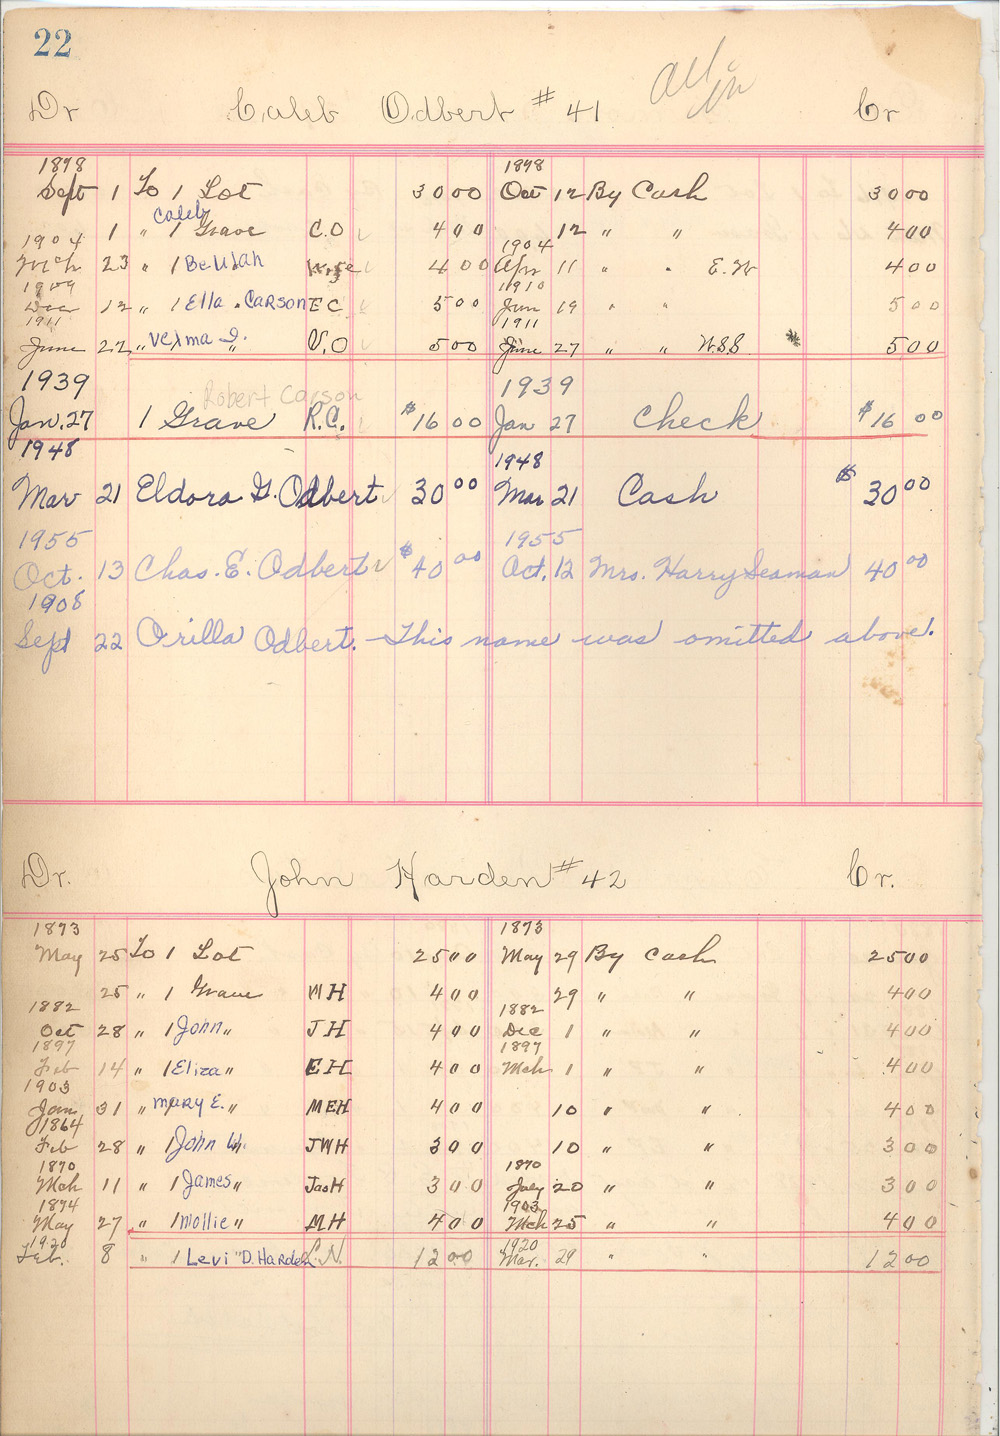 22
all in
Dr Caleb Odbert # 41 Cr
1898 1898
Sept 1 To 1 Lot 30 00 Oct 12 By Cash 30 00
Caleb
1 " 1 Grave C.O 4 00 12 " " 4 00
1904 1904
Mch 23 " 1 Beulah Wife 4 00 Apr 11 " " E.W 4 00
1909 1910
Dec 12 " 1 Ella . Carson E C 5 00 Jun 19 " " 5 00
1911 1911
June 22 " Velma I. " V.O 5 00 June 27 " " W.S.S. 5 00
1939 1939
Robert Carson
Jan. 27 1 Grave R.C. $16 00 Jan 27 Check $16 00
1948 1948
Mar 21 Eldora G. Odbert 30 00 Mar 21 Cash $30 00
1955 1955
Oct. 13 Chas. E. Odbert $40 00 Oct. 12 Mrs. Harry Seaman 40 00
1908
Sept 22 Orilla Odbert. - This name was omitted above.
Dr. John Harden # 42 Cr.
1873 1873
May 25 To 1 Lot 25 00 May 29 By Cash 25 00
25 " 1 Grave M H 4 00 29 " " 4 00
1882 1882
Oct 28 " 1 John " J H 4 00 Dec 1 " " 4 00
1897 1897
Feb 14 " 1 Eliza " E H 4 00 Mch 1 " " 4 00
1903
Jan 31 " Mary E. " M E H 4 00 10 " " 4 00
1864
Feb 28 " 1 John W. J W H 3 00 10 " " 3 00
1870 1870
Mch 11 " 1 James " Jas H 3 00 July 20 " " 3 00
1874 1903
May 27 " 1 Mollie " M H 4 00 Mch 25 " " 4 00
1920 1920
Feb. 8 " 1 Levi " D. Harden 12 00 Mar. 29 " " 12 00